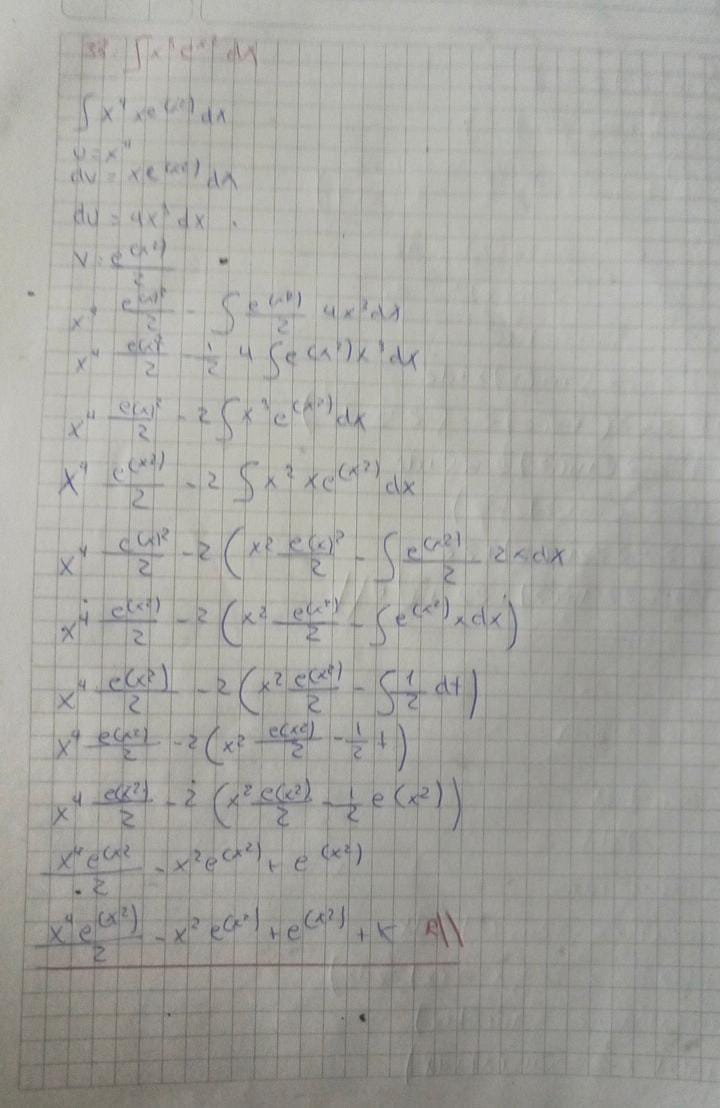 ∫x⁴ x e^(x²) dx
u = x⁴
dv = x e^(x²) dx
du = 4x³ dx
v = e^(x²)/2
x⁴ e^(x)²/2 - ∫ e^(x²)/2 4x³dx
x⁴ e^(x)²/2 - 1/2 4 ∫e^(x²) x³ dx
x⁴ e^(x)²/2 - 2 ∫x³ e^(x²) dx
x⁴ e^(x²)/2 - 2 ∫ x² x e^(x²) dx
x⁴ e^(x)²/2 - 2 ( x² e^(x)²/2 - ∫ e^(x²)/2 2xdx
x⁴ e^(x²)/2 - 2 (x² e^(x²)/2 - ∫e^(x²) x dx)
x⁴ e^(x²)/2 - 2 (x² e^(x²)/2 - ∫ 1/2 dt)
x⁴ e^(x²)/2 - 2 (x² e^(x²)/2 - 1/2 t)
x⁴ e^(x²)/2 - 2 (x² e^(x²)/2 - 1/2 e^(x²))
x⁴e^(x²/2 - x²e^(x²) + e^(x²)
x⁴e^(x²)/2 - x² e^(x²) + e^(x²) + K R//